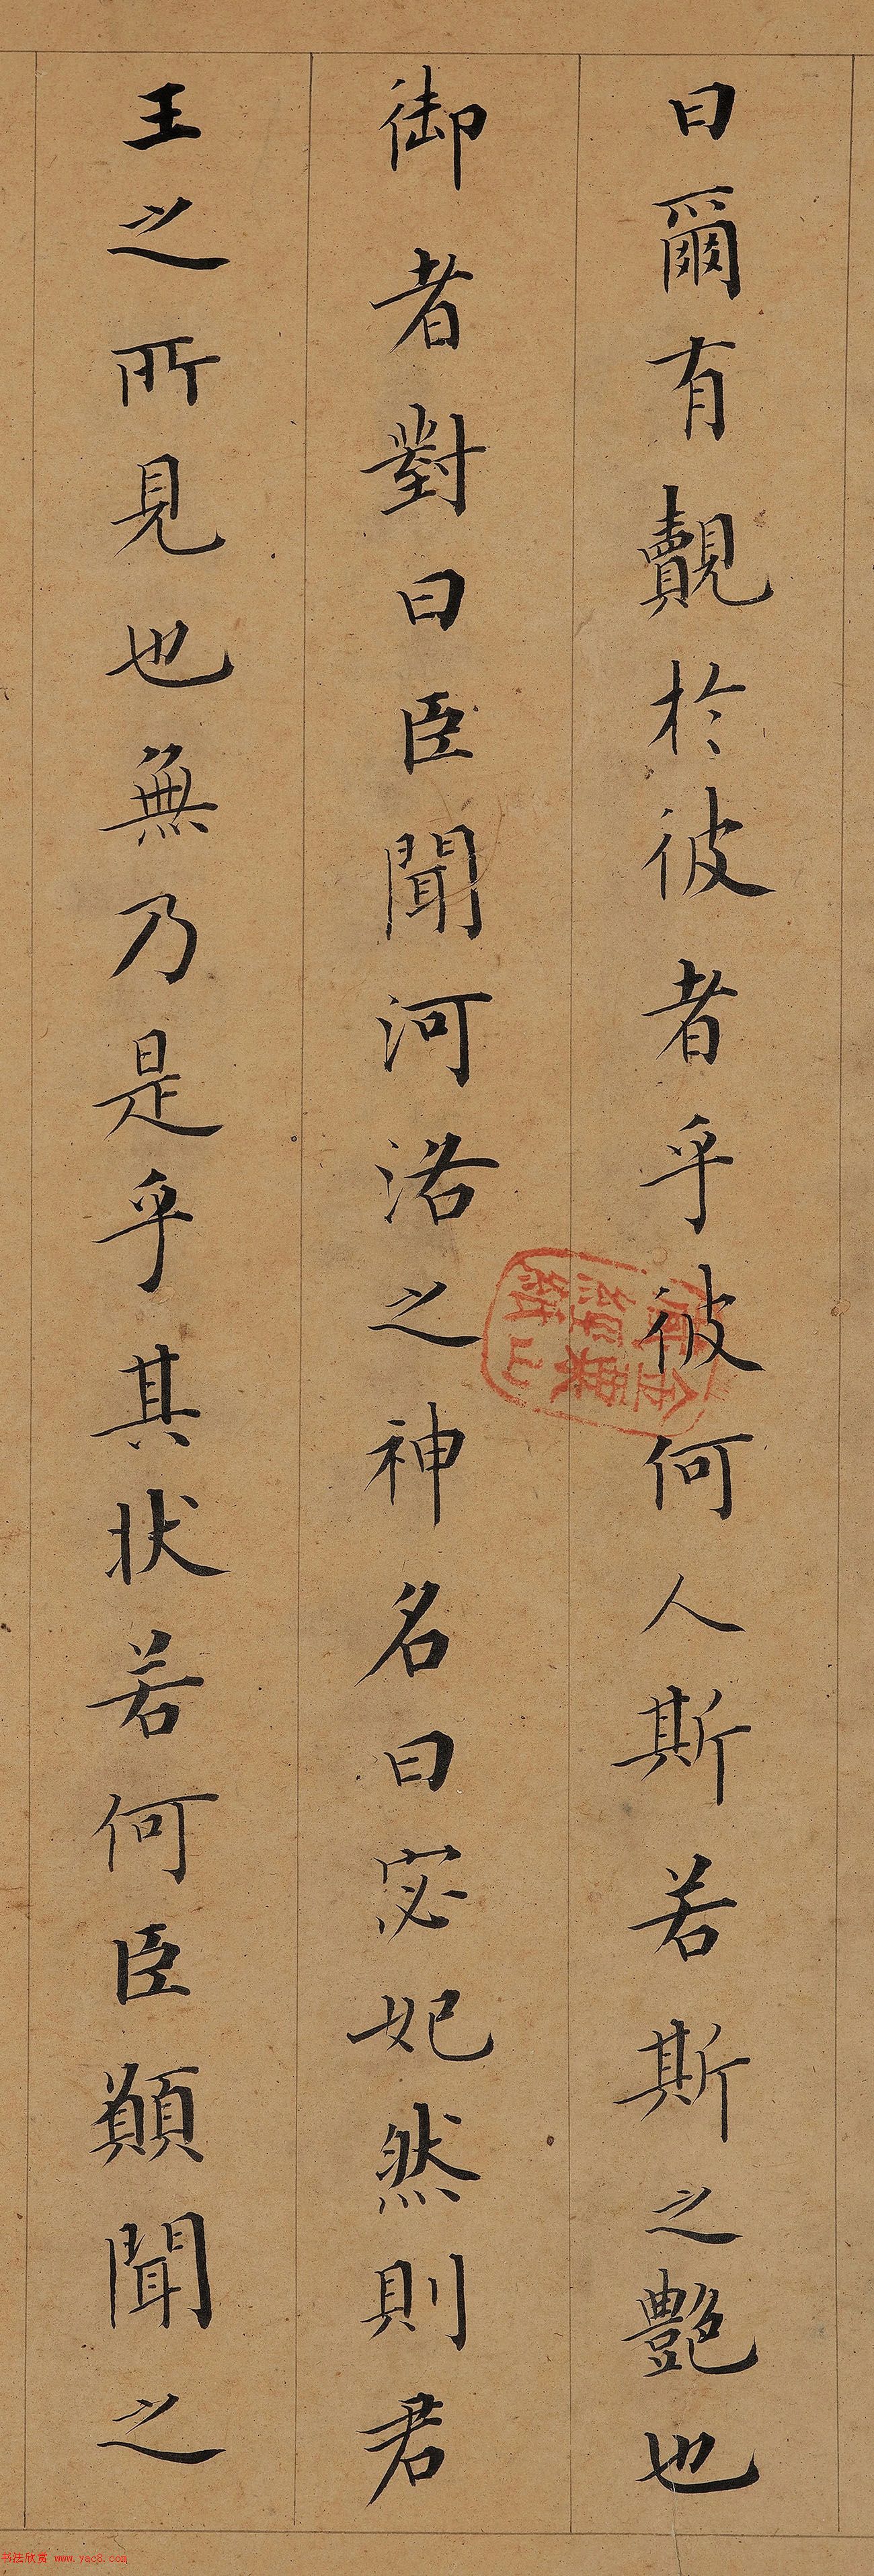 曰爾有覿於彼者乎彼何人斯若斯之艷也
御者對曰臣聞河洛之神名曰宓妃然則君
王之所見也無乃是乎其狀若何臣願聞之
书法欣赏 www.yac8.com